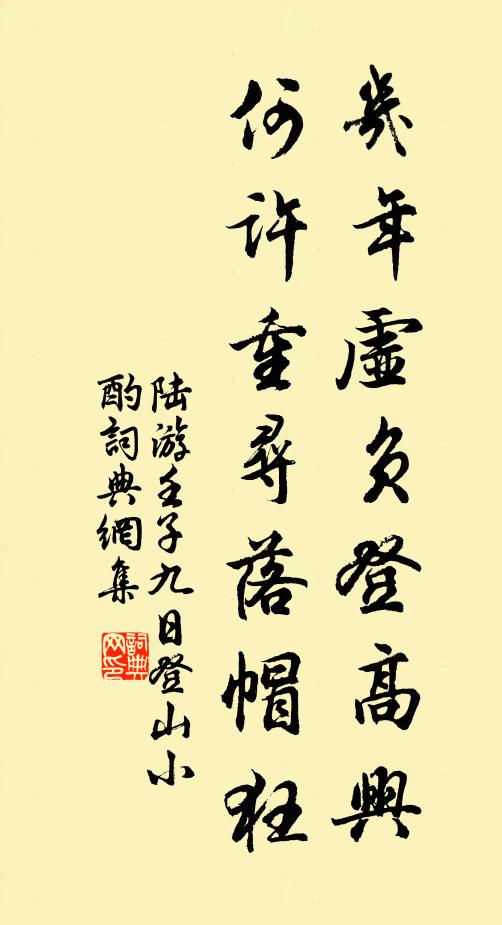 幾年虛負登高興
何許重尋落帽狂
陸游壬子九日登山小
酌詞典網集
詞典網印